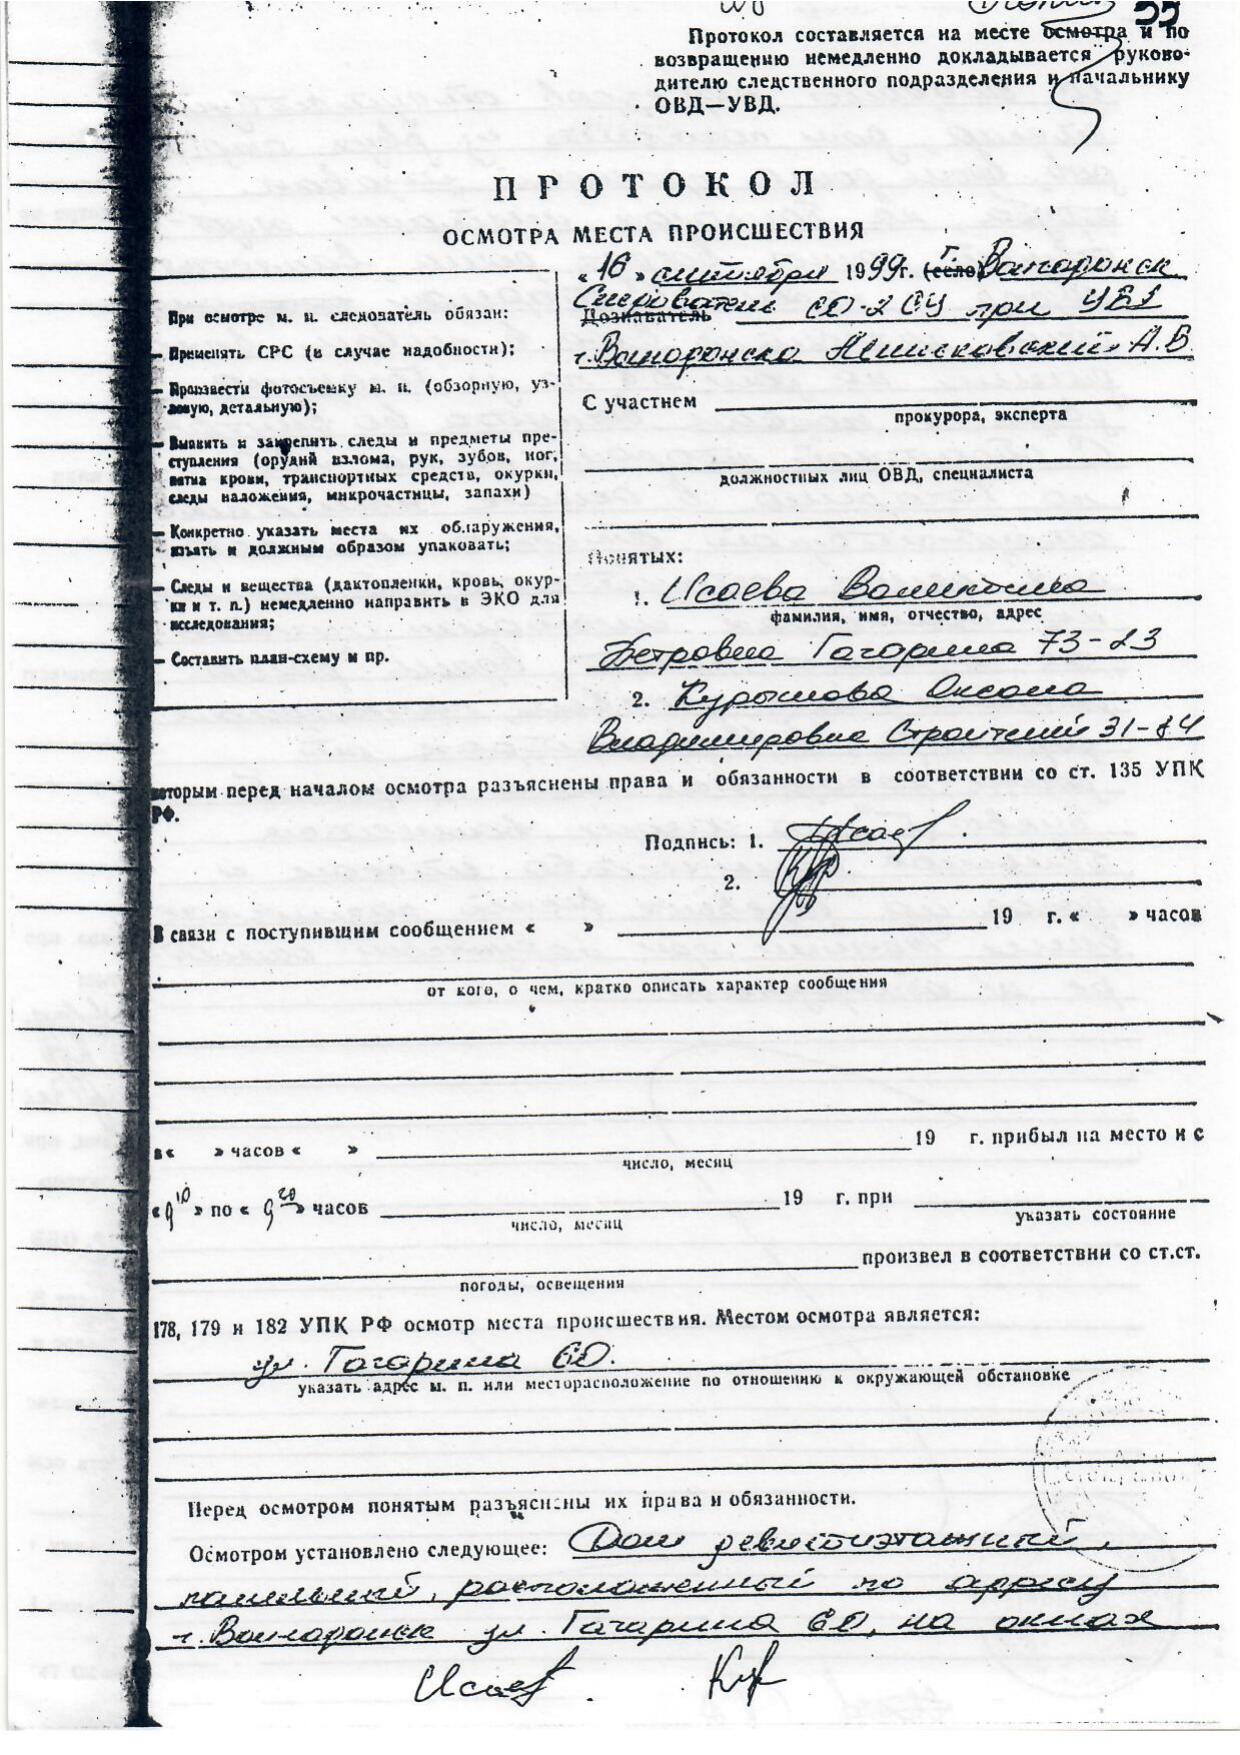 55
Протокол составляется на месте осмотра и по
возвращению немедленно докладывается руково-
дителю следственного подразделения и начальнику
ОВД—УВД.
ПРОТОКОЛ
ОСМОТРА МЕСТА ПРОИСШЕСТВИЯ
«16» сентября 1999г. г. (село) Волгодонск
Следователь Дознаватель СО-2 СУ при УВД
г. Волгодонска А.В.
При осмотре м. п. следователь обязан:
— Применять СРС (в случае надобности);
— Произвести фотосъемку м. п. (обзорную, уз-
ловую, детальную);
— Выявить и закрепить следы и предметы пре-
ступления (орудий взлома, рук, зубов, ног,
пятна крови, транспортных средств, окурки,
следы наложения, микрочастицы, запахи)
— Конкретно указать места их обнаружения,
изъять и должным образом упаковать;
— Следы и вещества (дактопленки, кровь, окур-
ки и т. п.) немедленно направить в ЭКО для
исследования;
— Составить план-схему и пр.
С участием
прокурора, эксперта
должностных лиц ОВД, специалиста
Понятых:
1. Исаева Валентина
фамилия, имя, отчество, адрес
Петровна Гагарина 73-23
2. Курышова Оксана
Владимировна Строителей 31-84
которым перед началом осмотра разъяснены права и обязанности в соответствии со ст. 135 УПК
РФ.
Подпись: 1.
2.
В связи с поступившим сообщением « » 19 г. « » часов
от кого, о чем, кратко описать характер сообщения
в « » часов « » 19 г. прибыл на место и с
число, месяц
«9 10» по «9 20» часов 19 г. при
число, месяц указать состояние
произвел в соответствии со ст.ст.
погоды, освещения
178, 179 и 182 УПК РФ осмотр места происшествия. Местом осмотра является:
ул. Гагарина 60.
указать адрес м. п. или месторасположение по отношению к окружающей обстановке
Перед осмотром понятым разъяснены их права и обязанности.
Осмотром установлено следующее: Дом девятиэтажный,
панельный, расположенный по адресу
г. Волгодонск ул. Гагарина 60, на окнах